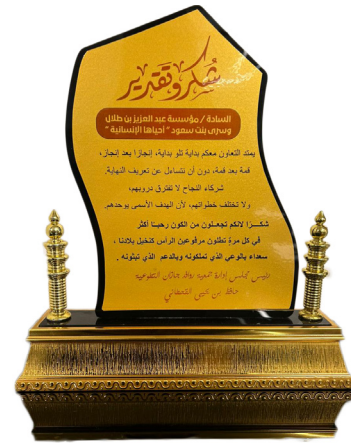 شكر وتقدير
السادة / مؤسسة عبد العزيز بن طلال
وسرى بنت سعود " أحياها الإنسانية "
يمتد التعاون معكم بداية تلو بداية، إنجازا بعد إنجاز،
قمة بعد قمة، دون أن نتساءل عن تعريف النهاية.
شركاء النجاح لا تفترق دروبهم،
ولا تختلف خطواتهم، لأن الهدف الأسمى يوحدهم.
شكــرًا لأنكم تجعلـون من الكون رحبـًا أكثر
في كل مرة تطلون مرفوعين الرأس كنخيل بلادنا ،
سعداء بالوعي الذي تملكونه وبالدعم الذي تبثونه .
رئيس مجلس إدارة جمعية رواد التطوعية
بن يحيى القحطاني